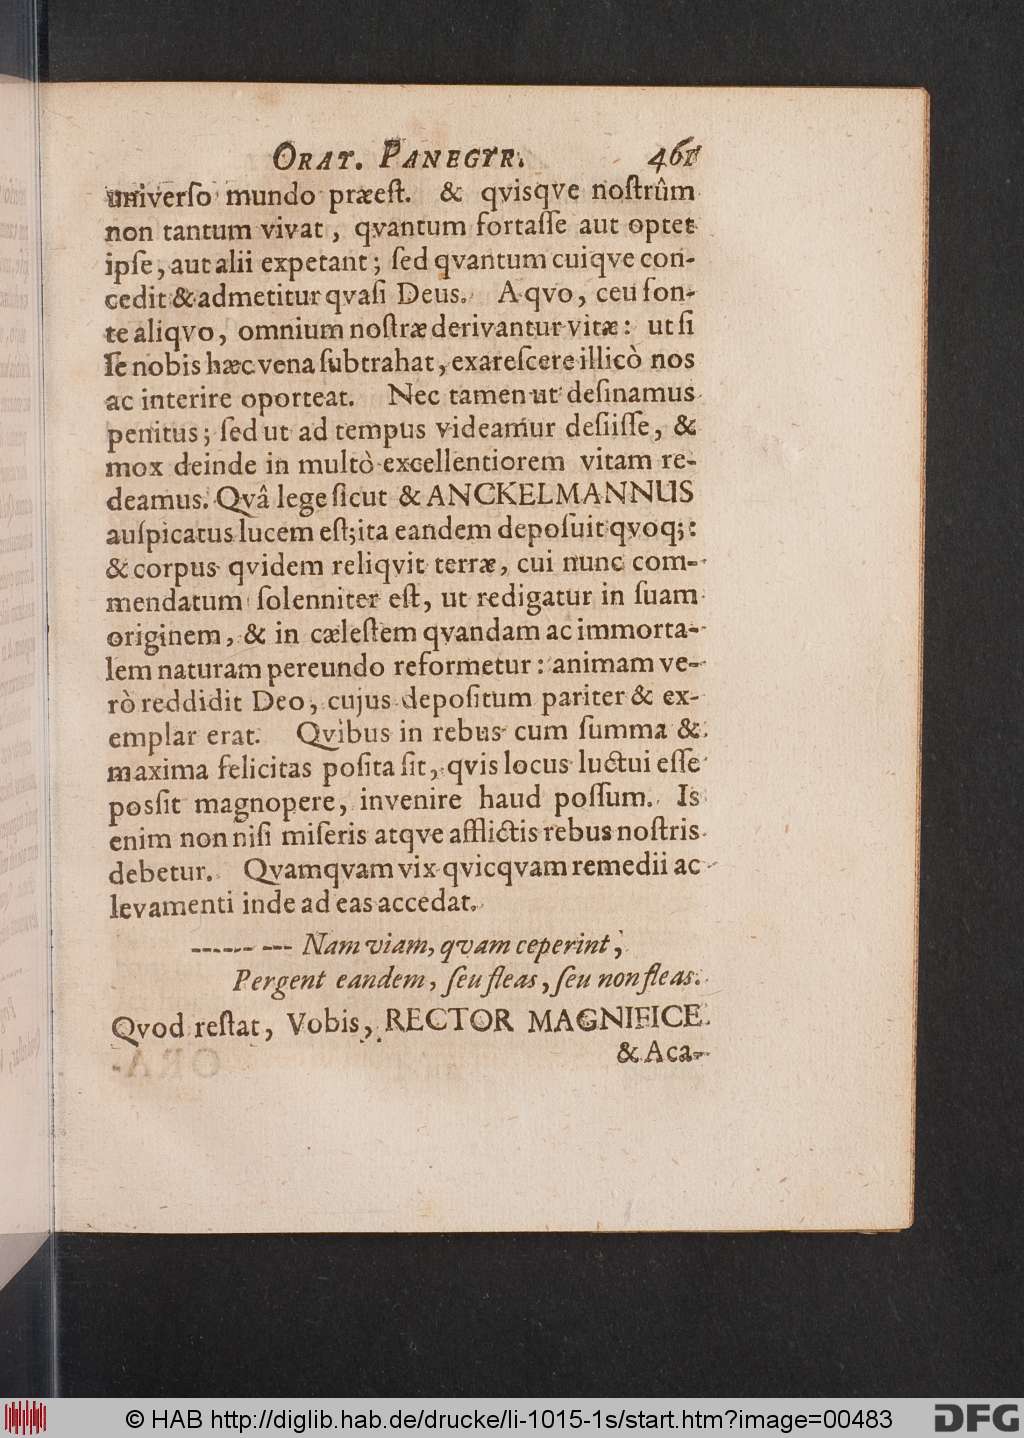 ORAT. PANEGYR. 461
univerſo mundo præeſt. & qvisqve noſtrûm
non tantum vivat, qvantum fortaſſe aut optet
ipſe, aut alii expetant; ſed qvantum cuiqve con-
cedit & admetitur qvaſi Deus. A qvo, ceu fon-
te aliqvo, omnium noſtræ derivantur vitæ: ut ſi
ſe nobis hæc vena ſubtrahat, exareſcere illicò nos
ac interire oporteat. Nec tamen ut deſinamus
penitus; ſed ut ad tempus videamur deſiiſſe, &
mox deinde in multò excellentiorem vitam re-
deamus. Qvâ lege ſicut & ANCKELMANNUS
auſpicatus lucem eſt; ita eandem depoſuit qvoq;:
& corpus qvidem reliqvit terræ, cui nunc com-
mendatum ſolenniter eſt, ut redigatur in ſuam
originem, & in cæleſtem qvandam ac immorta-
lem naturam pereundo reformetur: animam ve-
rò reddidit Deo, cujus depoſitum pariter & ex-
emplar erat. Qvibus in rebus cum ſumma &
maxima felicitas poſita ſit, qvis locus luctui eſſe
posſit magnopere, invenire haud poſſum. Is
enim non niſi miſeris atqve afflictis rebus noſtris
debetur. Qvamqvam vix qvicqvam remedii ac
levamenti inde ad eas accedat.
------ --- Nam viam, qvam ceperint,
Pergent eandem, ſeu fleas, ſeu non fleas.
Qvod reſtat, Vobis, RECTOR MAGNIFICE.
& Aca-
© HAB http://diglib.hab.de/drucke/li-1015-1s/start.htm?image=00483 DFG